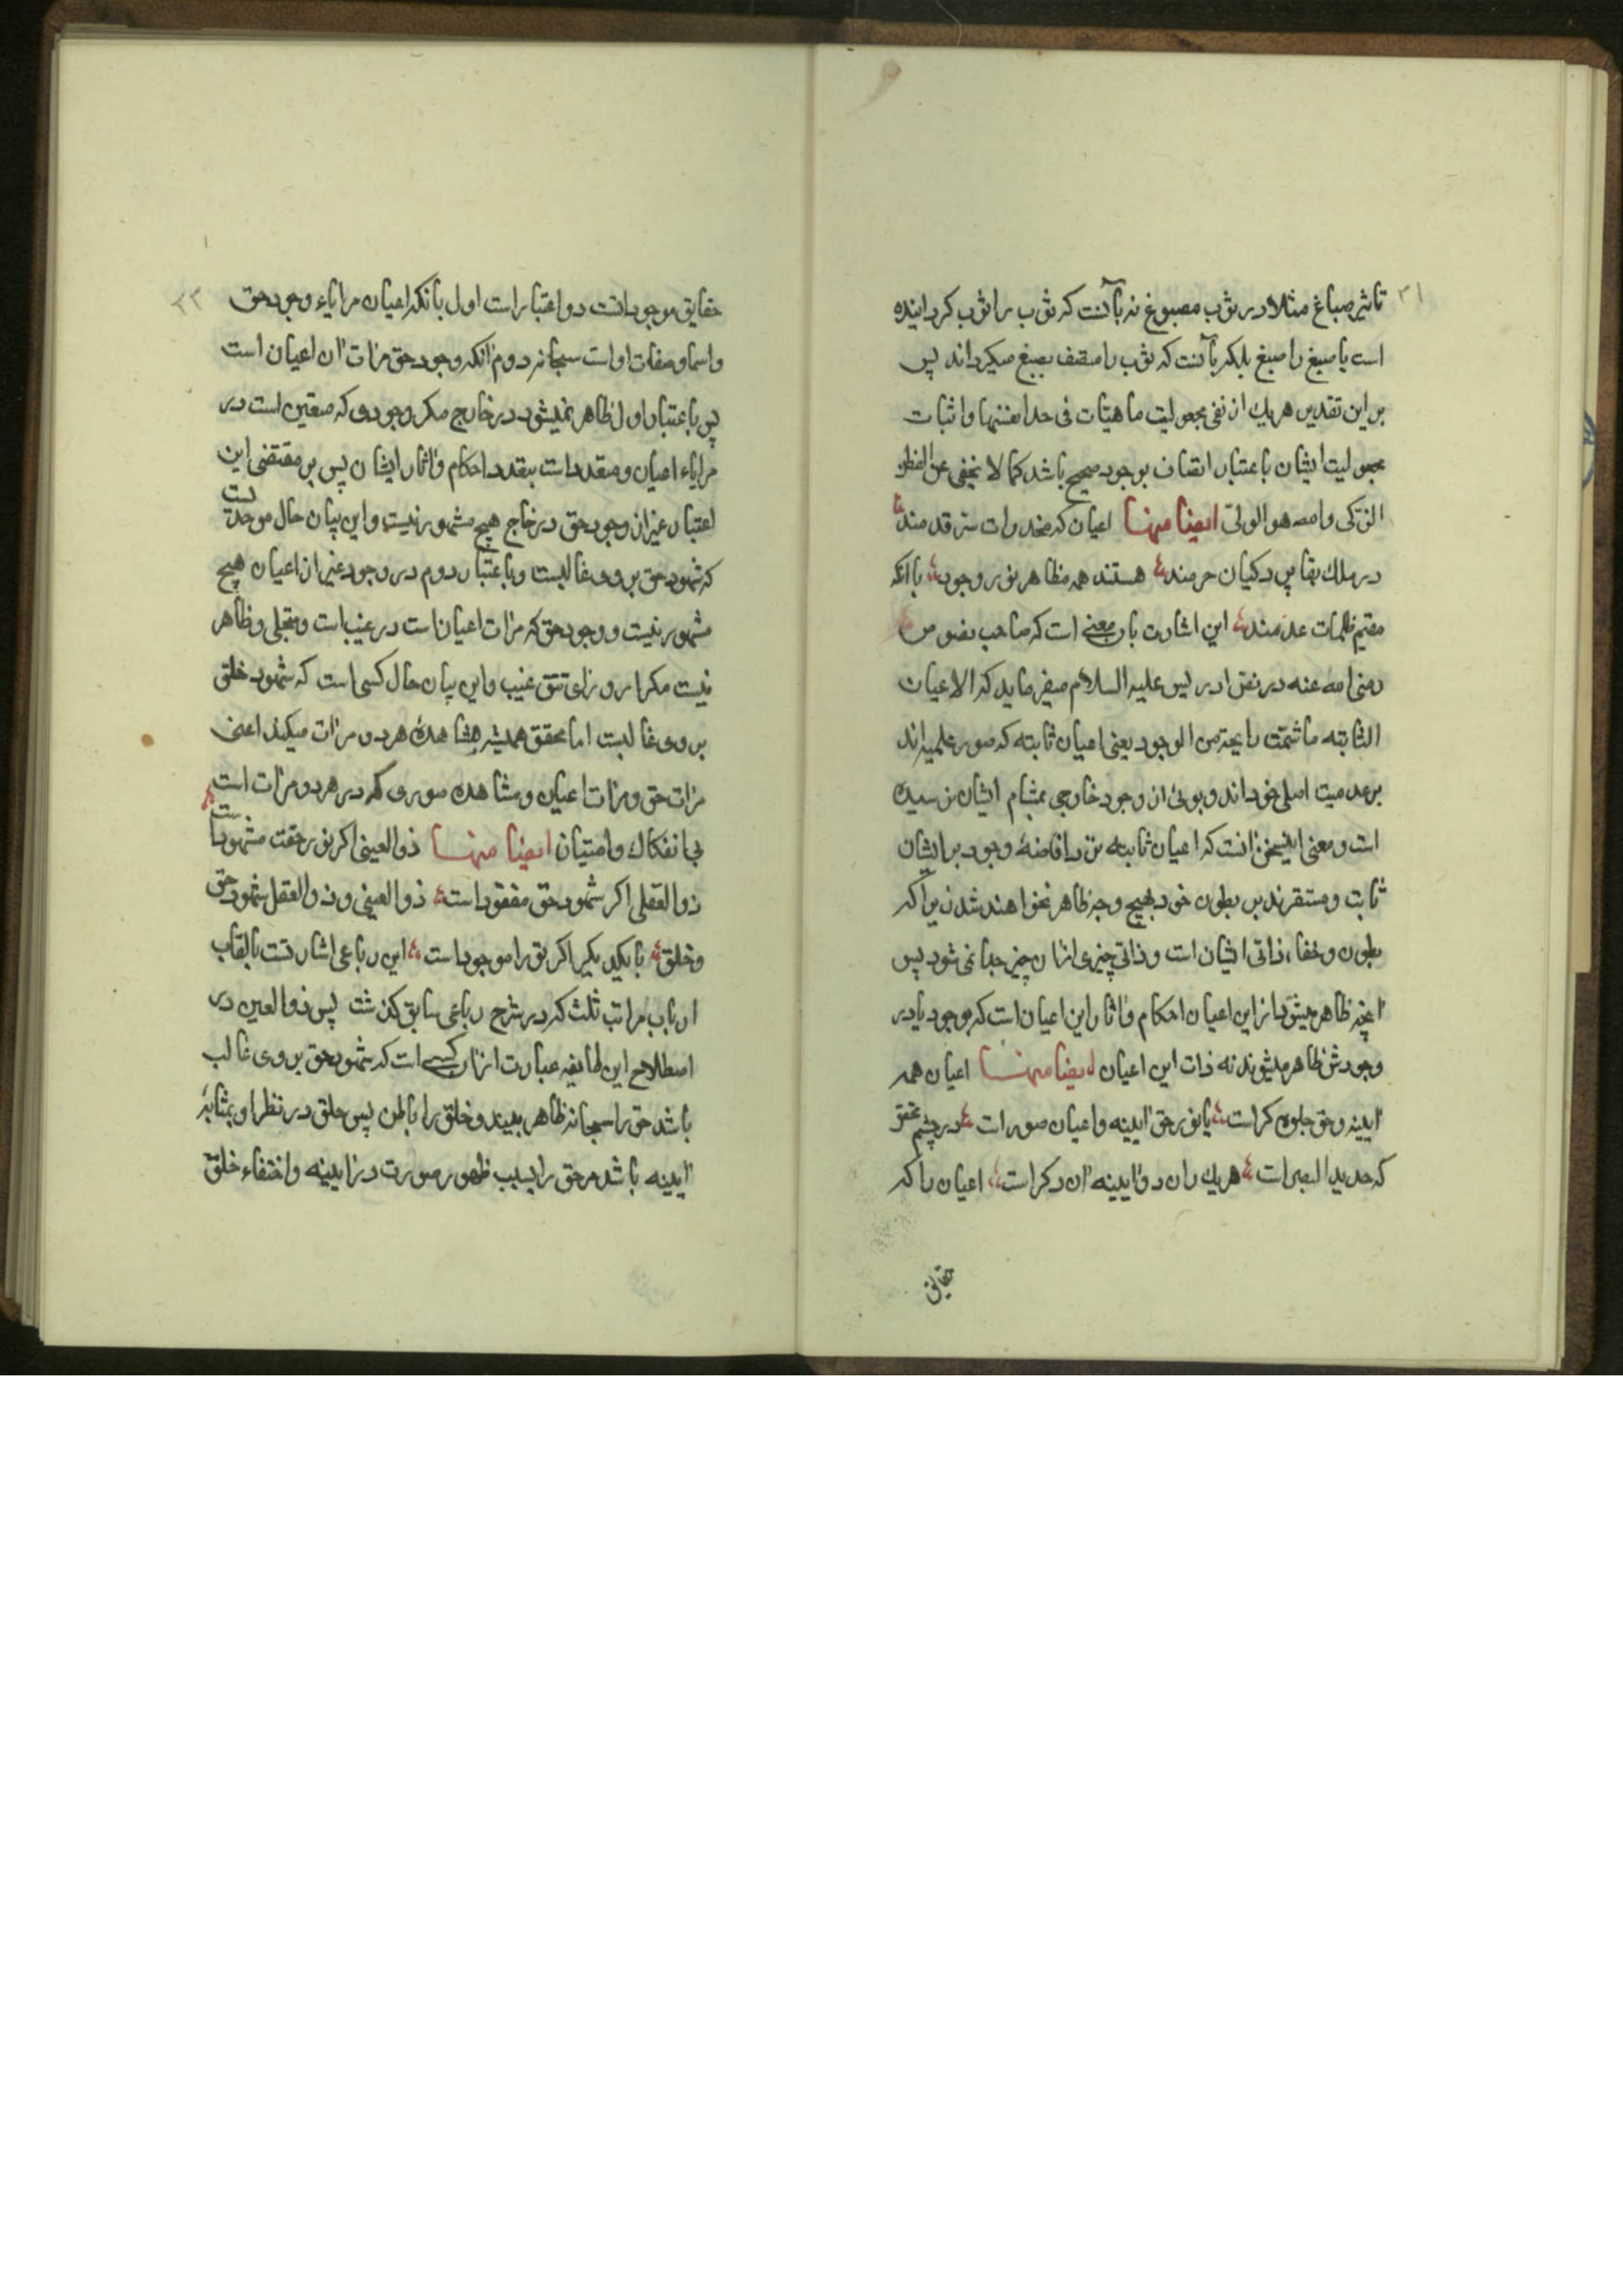 ۲۱
تاثیر صباغ مثلا در ثوب مصبوغ نه بآنست که ثوب را ثوب کردانیده
است یا صبغ را صبغ بلکه بآنست که ثوب را متصف بصبغ میکرداند پس
بر این تقدیر هر یك از نفی مجعولیت ماهیات فی حد انفسها و اثبات
مجعولیت ایشان باعتبار اتصاف بوجود صحیح باشد کما لا یخفی علی الفطن
الزکی والله هو الولی ایضا منها اعیان که مخدرات ستر قدمند
در ملك بقا پردکیان حرمند هستند همه مظاهر نور وجود با انکه
مقیم ظلمات عدمند این اشارت بان معنی است که صاحب فصوص
رضی الله عنه در فص ادریس علیه السلام میفرماید که الاعیان
الثابته ما شمت رایحة من الوجود یعنی اعیان ثابته که صور علمیه اند
بر عدمیت اصلی خود اند و بوئی از وجود خارجی بمشام ایشان نرسیده
است و معنی این سخن انست که اعیان ثابته نزد افاضهٔ وجود بر ایشان
ثابت و مستقرند بر بطون خود بهیچ وجه ظاهر نخواهند شد زیرا که
بطون و خفاء ذاتی ایشان است و ذاتی چیزی ازان چیز جدا نمی شود پس
انچه ظاهر میشود از این اعیان احکام و اثار این اعیان است که بوجود یا در
وجودش ظاهر میشوند نه ذات این اعیان ایضا منها اعیان همه
ایینه و حق جلوه کر است یا نور حق ایینه و اعیان صور است در چشم محقق
که حدید البصر است هر یك زان دو ایینه ان دکر است اعیان را که
حقایق
۲۲
حقایق موجوداتست دو اعتبار است اول بانکه اعیان مرایاء وجود حق
و اسما و صفات اوست سبحانه دوم انکه وجود حق مرات ان اعیان است
پس باعتبار اول ظاهر نمیشود در خارج مکر وجودی که متعین است در
مرایاء اعیان و متعدد است بتعدد احکام و اثار ایشان پس بر مقتضی این
اعتبار غیر از وجود حق در خارج هیچ مشهور نیست و این بیان حال موحدیست
که شهود حق بر وی غالبست و باعتبار دوم در وجود غیر از اعیان هیچ
مشهور نیست و وجود حق که مرات اعیان است در غیب است و متجلی و ظاهر
نیست مکر از ورای تتق غیب و این بیان حال کسی است که شهود خلق
بر وی غالبست اما محقق همیشه مشاهدهٔ هر دو مرات میکند اعنی
مرات حق و مرات اعیان و مشاهده صوری که در هر دو مرات است
بی انفکاك و امتیاز ایضا منها ذو العینی اکر نور حقت مشهود است
ذو العقلی اکر شهود حق مفقود است ذو العینی و ذو العقل شهود حق
و خلق با یکدیکر اکر تو را موجود است این رباعی اشارتست بالقاب
ارباب مراتب ثلث که در شرح رباعی سابق کذشت پس ذو العین در
اصطلاح این طایفه عبارت ازان کسی است که شهود حق بر وی غالب
باشد حق را سبحانه ظاهر بیند و خلق را باطن پس خلق در نظر او بمثابهٔ
ایینه باشد مر حق را بسبب ظهور صورت در ایینه و اختفاء خلق